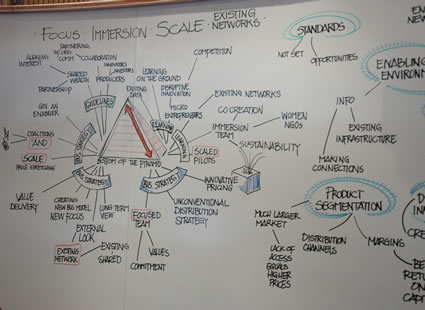 FOCUS IMMERSION SCALE
EXISTING
NETWORKS
PARTNERING
COLLABORATION
ALIGNING
INTEREST
SHARED
WEALTH
PRODUCERS
LEARNING
ON THE GROUND
COMPETITION
PARTNERSHIP
EXISTING
DATA
DISRUPTIVE
INNOVATION
MICRO
ENTREPRENEURS
EXISTING NETWORKS
CO CREATION
IMMERSION
TEAM
WOMEN
NGOS
SUSTAINABILITY
GUIDELINES
AN ENABLER
COALITIONS AND
SCALE
BUS STRATEGY
LEARNING
LEARNING
SCALED
PILOTS
BOTTOM OF THE PYRAMID
BUS STRATEGY
BUS STRATEGY
INNOVATIVE
PRICING
VALUE
DELIVERY
CREATING
NEW BUS. MODEL
NEW FOCUS
LONG TERM
VIEW
EXTERNAL
LOOK
EXISTING
NETWORK
EXISTING
SHARED
FOCUSED
TEAM
VALUES
COMMITMENT
UNCONVENTIONAL
DISTRIBUTION
STRATEGY
STANDARDS
NOT SET
OPPORTUNITIES
ENABLING
INFO
EXISTING
INFRASTRUCTURE
MAKING
CONNECTIONS
PRODUCT
SEGMENTATION
MUCH LARGER
MARKET
LACK OF
ACCESS
EQUALS
HIGHER
PRICES
DISTRIBUTION
CHANNELS
MARGINS
ON